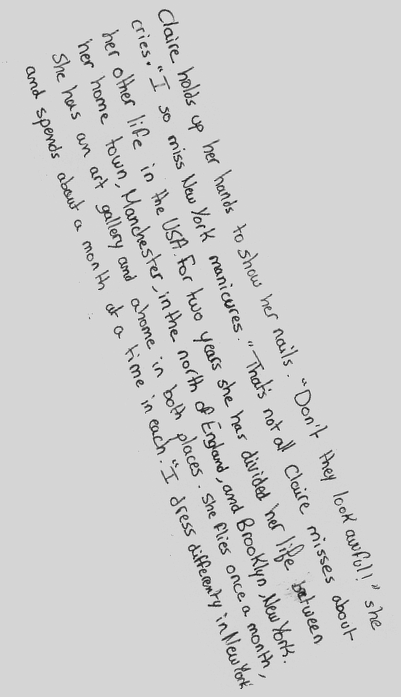 Claire holds up her hands to show her nails. "Don't they look awful!" she
cries. "I so miss New York manicures." That's not all Claire misses about
her other life in the USA. For two years she has divided her life between
her home town, Manchester, in the north of England, and Brooklyn, New York.
She has an art gallery and ahome in both places. She flies once a month,
and spends about a month at a time in each. "I dress differenty in New York